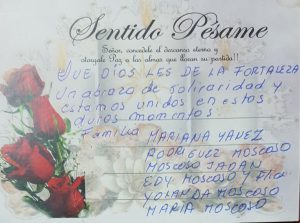 Sentido Pésame
Señor, concedele el descanso eterno y
otorgale Paz a las almas que lloran su partida!!
QUE DIOS LES DE LA FORTALEZA
Un abrazo de solidaridad y
estamos unidos en estos
duros momentos.
Familia MARIANA YANEZ
RODRIGUEZ MOSCOSO
MOSCOSO
EDY MOSCOSO y
YOLANDA MOSCOSO
MARIA MOSCOSO